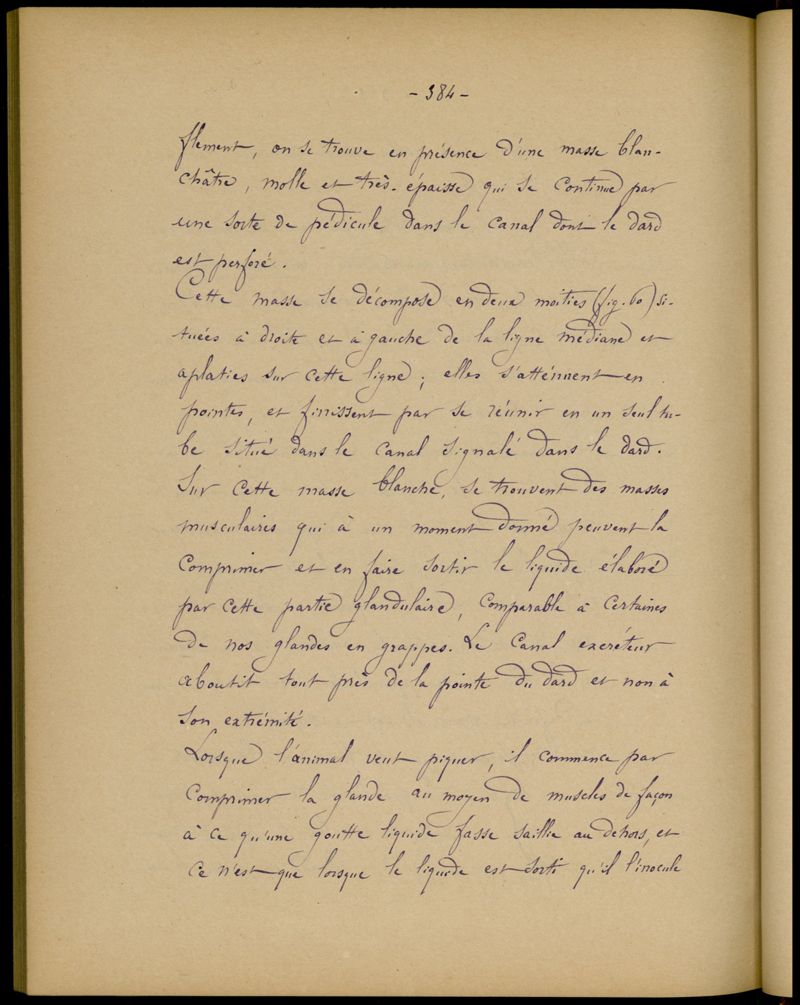 - 384 -
flement, on se trouve en présence d'une masse blan-
châtre, molle et très-épaisse qui se continue par
une sorte de pédicule dans le canal dont le dard
est perforé.
Cette masse se décompose en deux moitiés (fig. 60) si-
tuées à droite et à gauche de la ligne médiane et
aplaties sur cette ligne ; elles s'atténuent en
pointes, et finissent par se réunir en un seul tu-
be situé dans le canal signalé dans le dard.
Sur cette masse blanche, se trouvent des masses
musculaires qui à un moment donné peuvent la
comprimer et en faire sortir le liquide élaboré
par cette partie glandulaire, comparable à certaines
de nos glandes en grappes. Le canal excréteur
aboutit tout près de la pointe du dard et non à
son extrémité.
Lorsque l'animal veut piquer, il commence par
comprimer la glande au moyen de muscles de façon
à ce qu'une goutte liquide fasse saillie au dehors, et
ce n'est que lorsque le liquide est sorti qu'il l'inocule